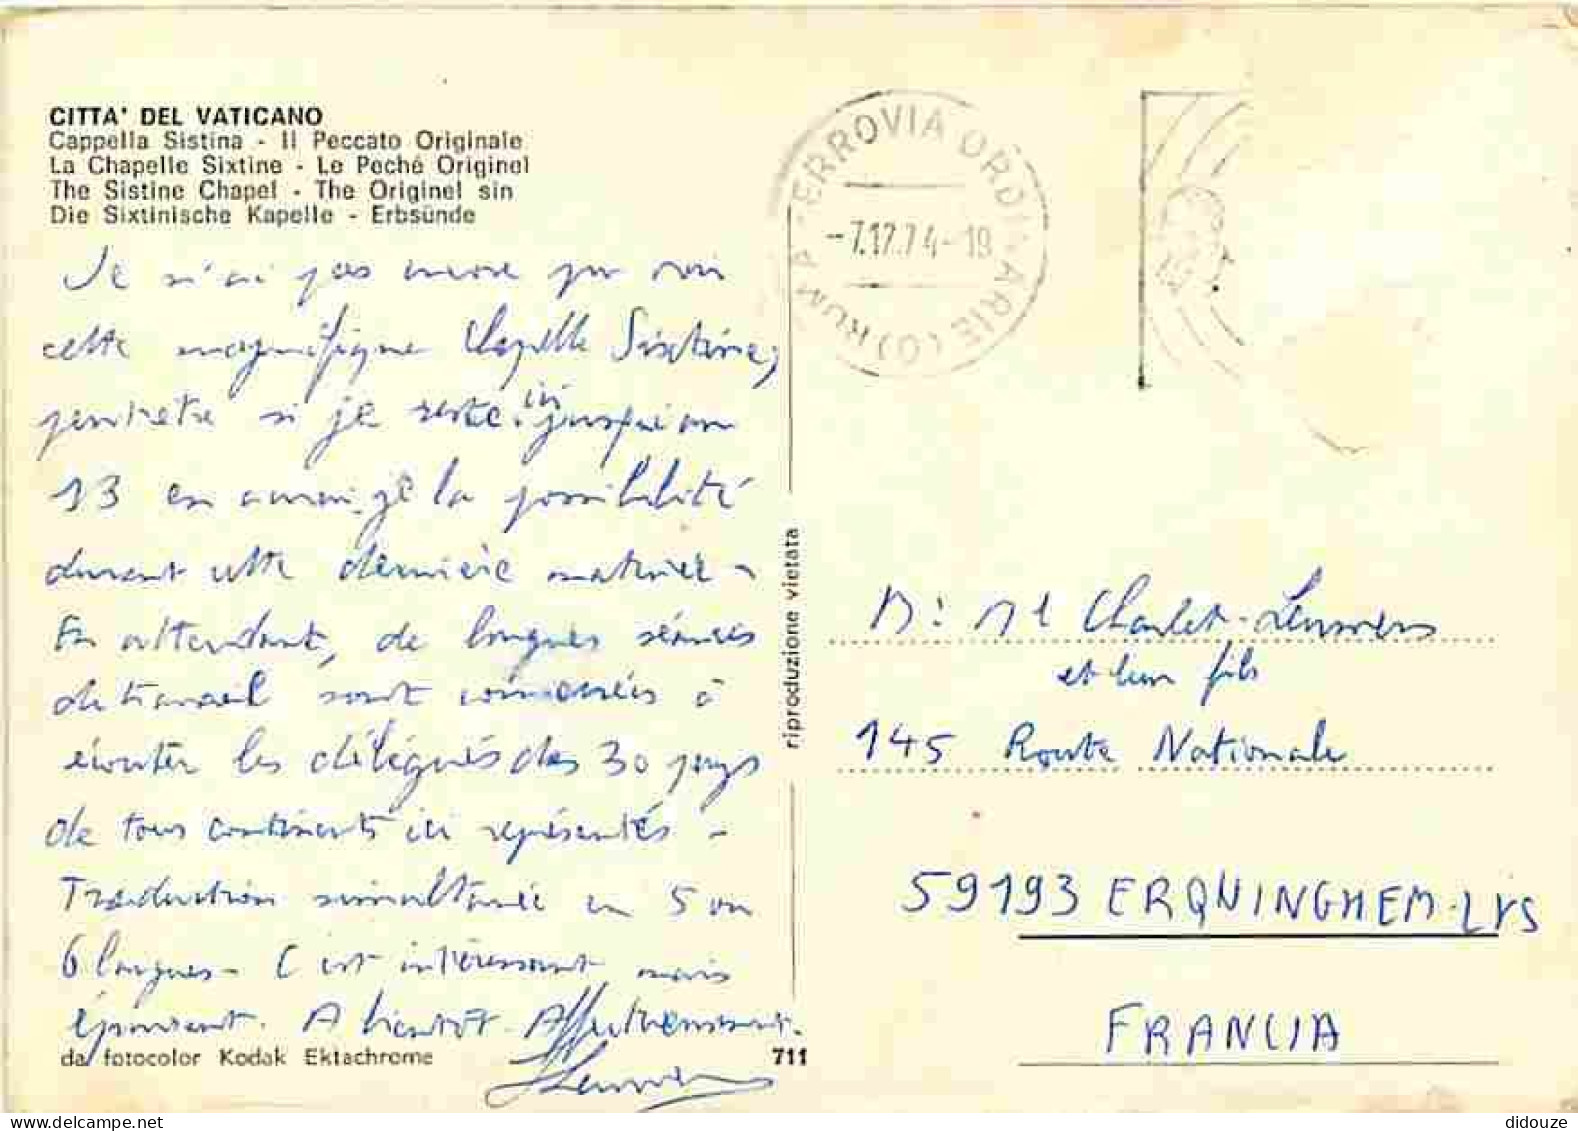 CITTA' DEL VATICANO
Cappella Sistina - Il Peccato Originale
La Chapelle Sixtine - Le Peché Originel
The Sistine Chapel - The Originel sin
Die Sixtinische Kapelle - Erbsünde
Je n'ai pas encore pu voir
cette magnifique Chapelle Sixtine,
peut-être si je reste ici jusqu'au
13 en aurai-je la possibilité
durant cette dernière matinée -
En attendant, de longues séances
de travail sont consacrées à
écouter les délégués des 30 pays
de tous continents ici représentés -
Traduction simultanée en 5 ou
6 langues - C'est intéressant mais
épuisant. A bientôt. Affectueusement.
da fotocolor Kodak Ektachrome
711
riproduzione vietata
FERROVIA ORDINARIE (O) ROMA
-7.12.74-19
Charlet-
et leur fils
145 Route Nationale
59193 ERQUINGHEM-LYS
FRANCIA
didouze